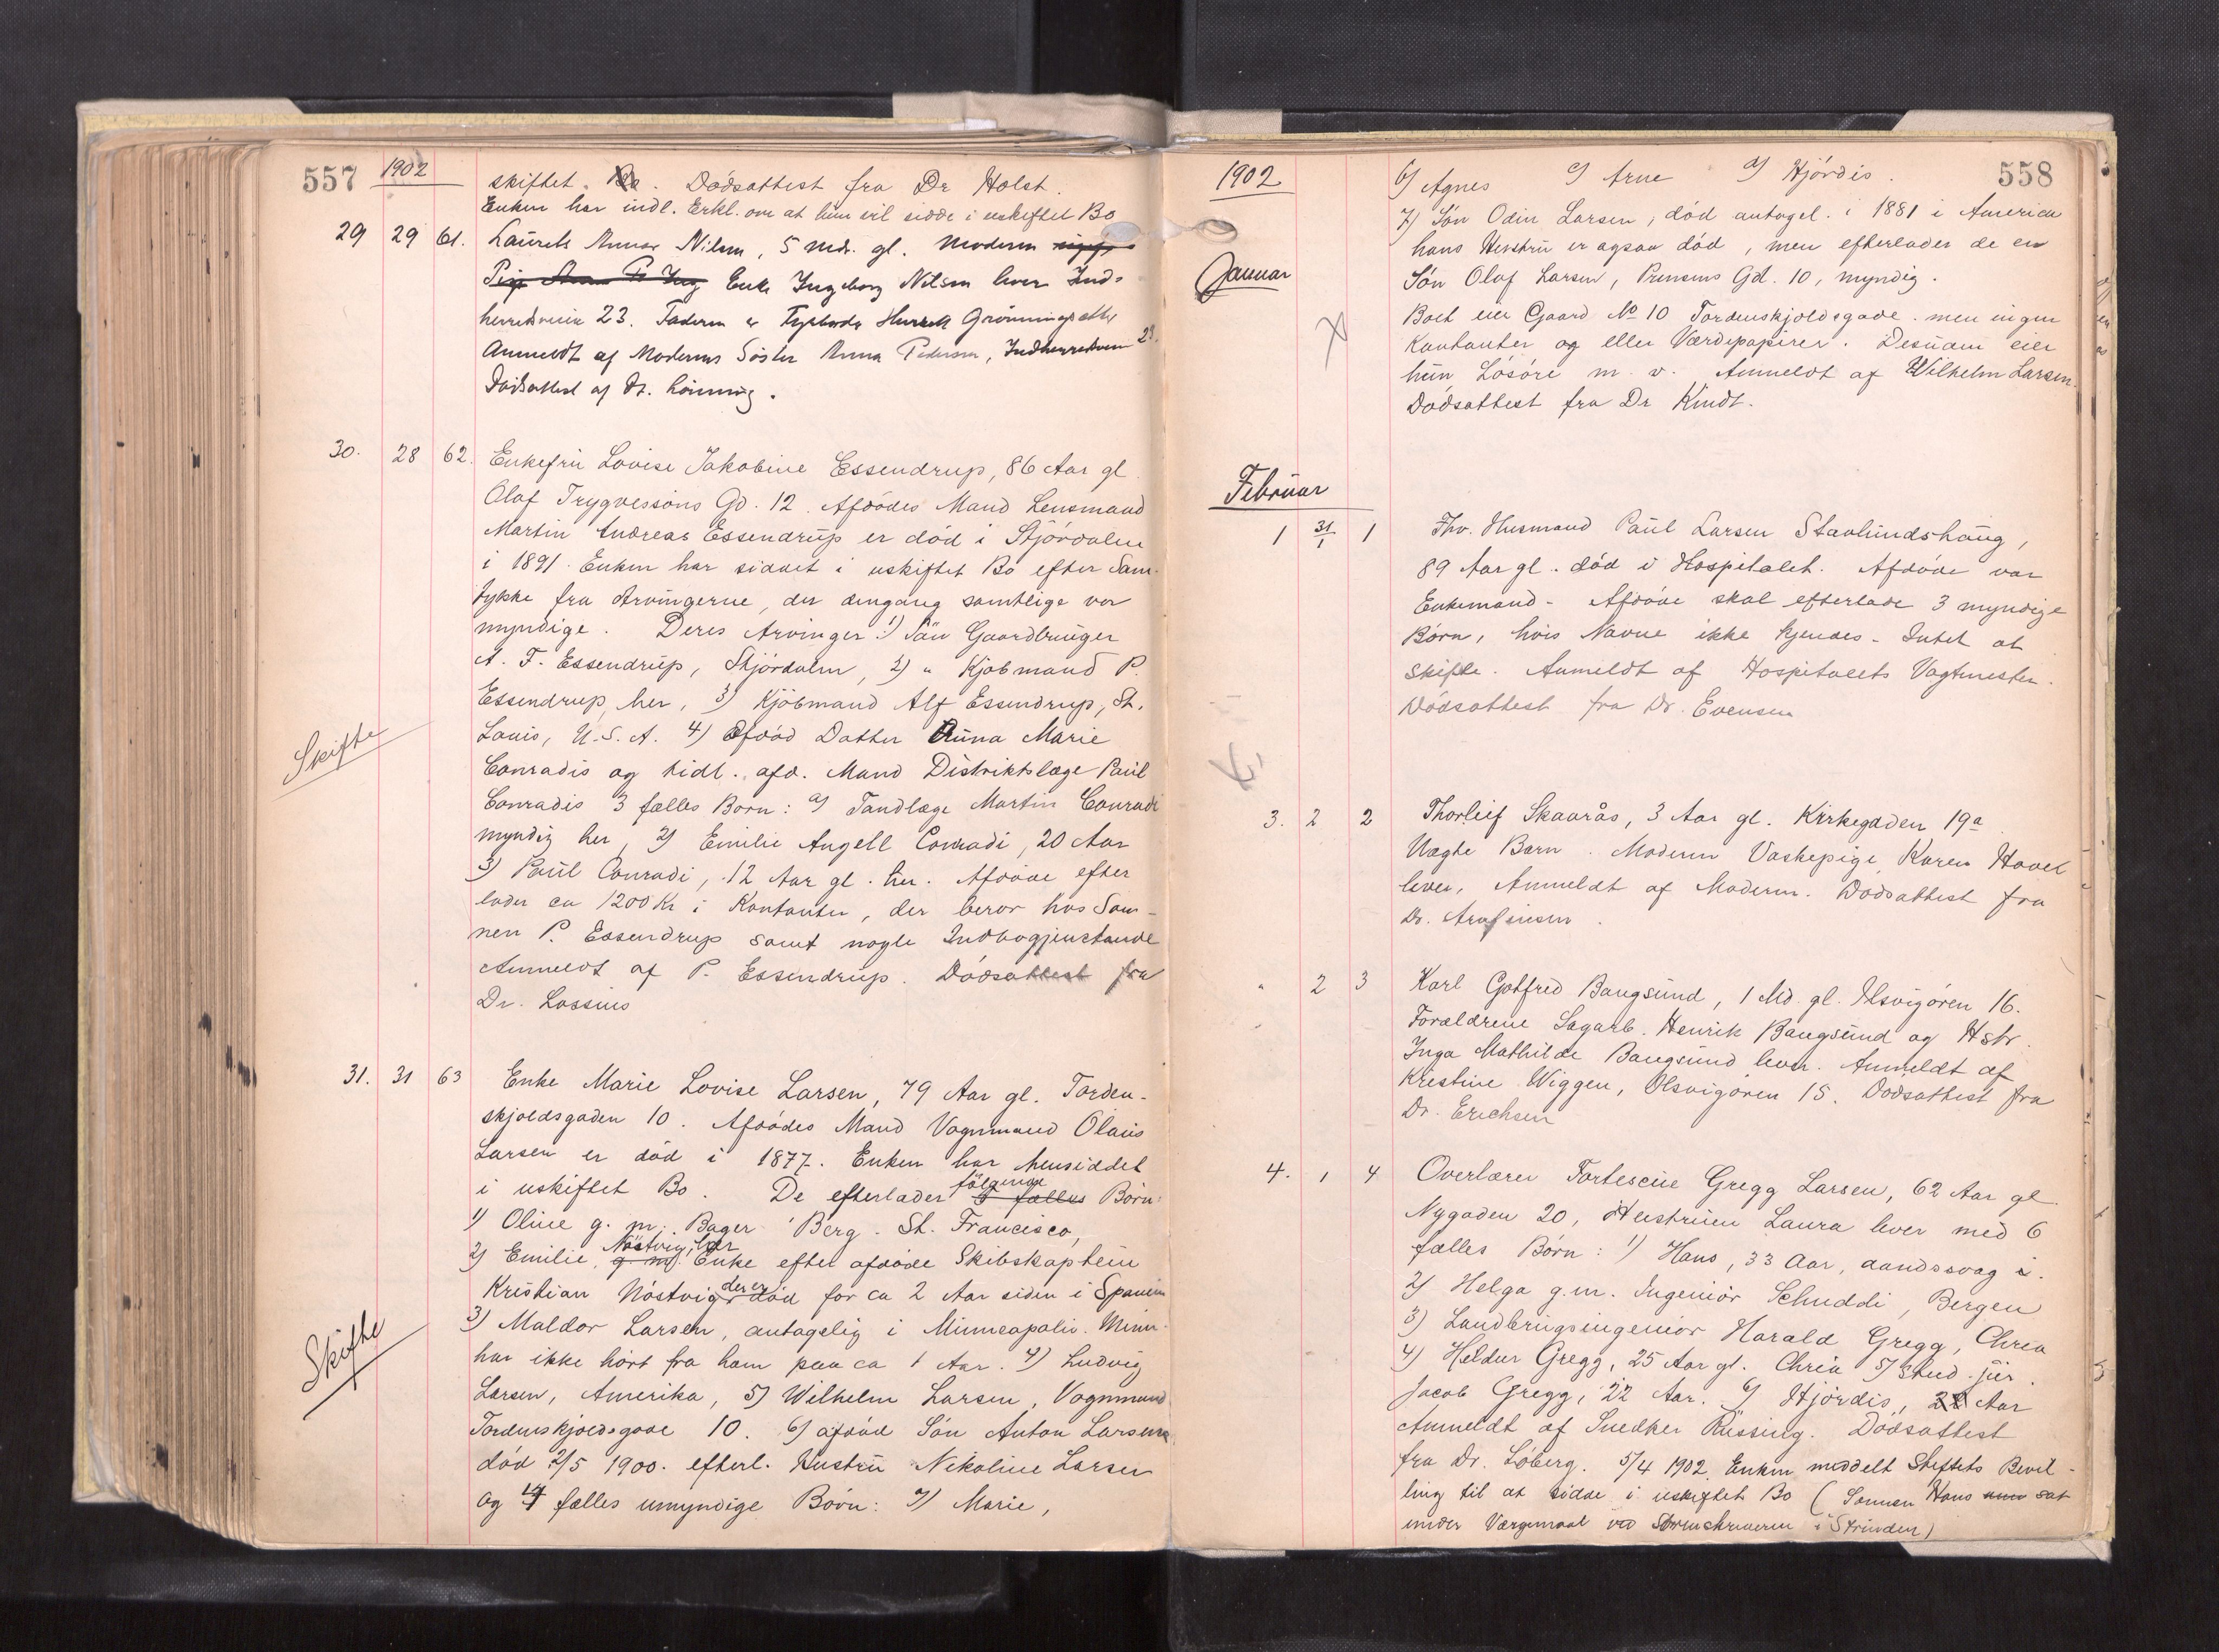 557 1902
skiftet. Dódsattest fra Dr Holst.
Enken har indl. Erkl. om at hun vil sidde i uskiftet Bo
29 29 61. Laurels Annar Nilsen, 5 Mdr. gl. Moderen
Enke Ingeborg Nilsen lever Ind-
herredsveien 23. Faderen er
Anmeldt af Moderens Sóster Anna Pedersen, Indherredsveien 23.
Dödsattest af Dr. Lönning.
30. 28 62. Enkefrü Lovise Jakobine Essendrup, 86 Aar gl
Olaf Trygvessöns Gd. 12. Afdódes Mand Lensmand
Martin Andreas Essendrüp er död i Stjórdalen
i 1891. Enken har siddet i uskiftet Bo efter Sam-
tykke fra Arvingerne, der dengang samtlige var
myndige. Deres Arvinger: 1) Sön Gaardbrüger
A. F. Essendrüp, Stjórdalen, 2) " Kjóbmand P.
Essendrup, her, 3) Kjöbmand Alf Essendrup, St.
Louis, U.S.A. 4) Afdód Datter Anna Marie
Conradis og tidl. afd. Mand Distriktslæge Paül
Conradis 3 fælles Born: a) Tandlæge Martin Conradi
myndig her, 2) Emilie Angell Conradi, 20 Aar
3) Paül Conradi, 12 Aar gl. her. Afdöde efter
lader ca 1200 Kr i Kontanter, der beror hos Søn-
nen P. Essendrup samt nogle Indbogjenstande
Anmeldt af P. Essendrup. Dódsattest fra
Dr. Lossius
Skifte
31. 31 63 Enke Marie Lovise Larsen, 79 Aar gl. Torden-
skjoldsgaden 10. Afdódes Mand Vognmand Olaüs
Larsen er död i 1877. Enken har hensiddet
i uskiftet Bo. De efterlader fölgende 6 fælles Börn:
1) Oline g. m. Bager Berg. St. Francisco,
2) Emilie Nöstvig, her g. m. Enke efter afdöde Skibskaptein
Kristian Nóstvig, der er död for ca 2 Aar siden i Spanien
3) Maldor Larsen, antagelig i Minneapolis. Minn.
har ikke hört fra ham paa ca 1 Aar. 4) Ludvig
Larsen, Amerika, 5) Wilhelm Larsen, Vognmand
Tordenskjoldsgade 10. 6) afdöd Sön Anton Larsen
död 2/5 1900. efterl. Hustrü Nikoline Larsen
og 4 fælles umyndige Börn: a) Marie,
Skifte
558
1902
Januar
b) Agnes c) Arne d) Hjórdis.
7) Sön Odin Larsen, död antagel. i 1881 i America
hans Hüstrü er ogsaa död, men efterlader de en
Sön Olaf Larsen, Prinsens Gd. 10, myndig.
Boet eier Gaard No 10 Tordenskjoldsgade. men ingen
Kontanter og eller Værdipapirer. Desüden eier
hün Lósóre m. v. Anmeldt af Wilhelm Larsen.
Dódsattest fra Dr Kindt.
Februar
1 31/1 1 Fhv. Husmand Paül Larsen Stavlundshaug,
89 Aar gl. död i Hospitalet. Afdóde var
Enkemand - Afdóde skal efterlade 3 myndige
Börn, hvis Navne ikke kjendes - Intet at
skifte. Anmeldt af Hospitalets Vagtmester.
Dödsattest fra Dr. Evensen
3. 2 2 Thorleif Skaarås, 3 Aar gl. Kirkegaden 19a
Uægte Barn. Moderen Vaskepige Karen Hovel
lever, Anmeldt af Moderen. Dödsattest fra
Dr. Arnfinsen.
" 2 3 Karl Gotfred Bangsund, 1 Md. gl. Ilsvigören 16.
Forældrene Sagarb. Henrik Bangsünd og Hstr.
Inga Mathilde Bangsund lever. Anmeldt af
Kristine Wiggen, Olsvigoren 15. Dödsattest fra
Dr. Erichsen
4. 1 4 Overlærer Fortescüe Gregg Larsen, 62 Aar gl
Nygaden 20, Hustruen Laura lever med 6
fælles Börn: 1) Hans, 33 Aar, aandssvag
2) Helga g.m. Ingeniör Schuddi, Bergen
3) Landbrugsingeniör Harald Gregg, Chria
4) Heldur Gregg, 25 Aar gl. Chria 5) Stud. jür.
Jacob Gregg, 22 Aar. 6) Hjördis, Aar
Anmeldt af Snedker Rüssing. Dödsattest
fra Dr. Löberg. 5/4 1902. Enken meddelt Skiftets Bevil-
ling til at sidde i uskiftet Bo (Sønnen Hans sat
under Værgemaal ved Sorenskriveren i Strinden)